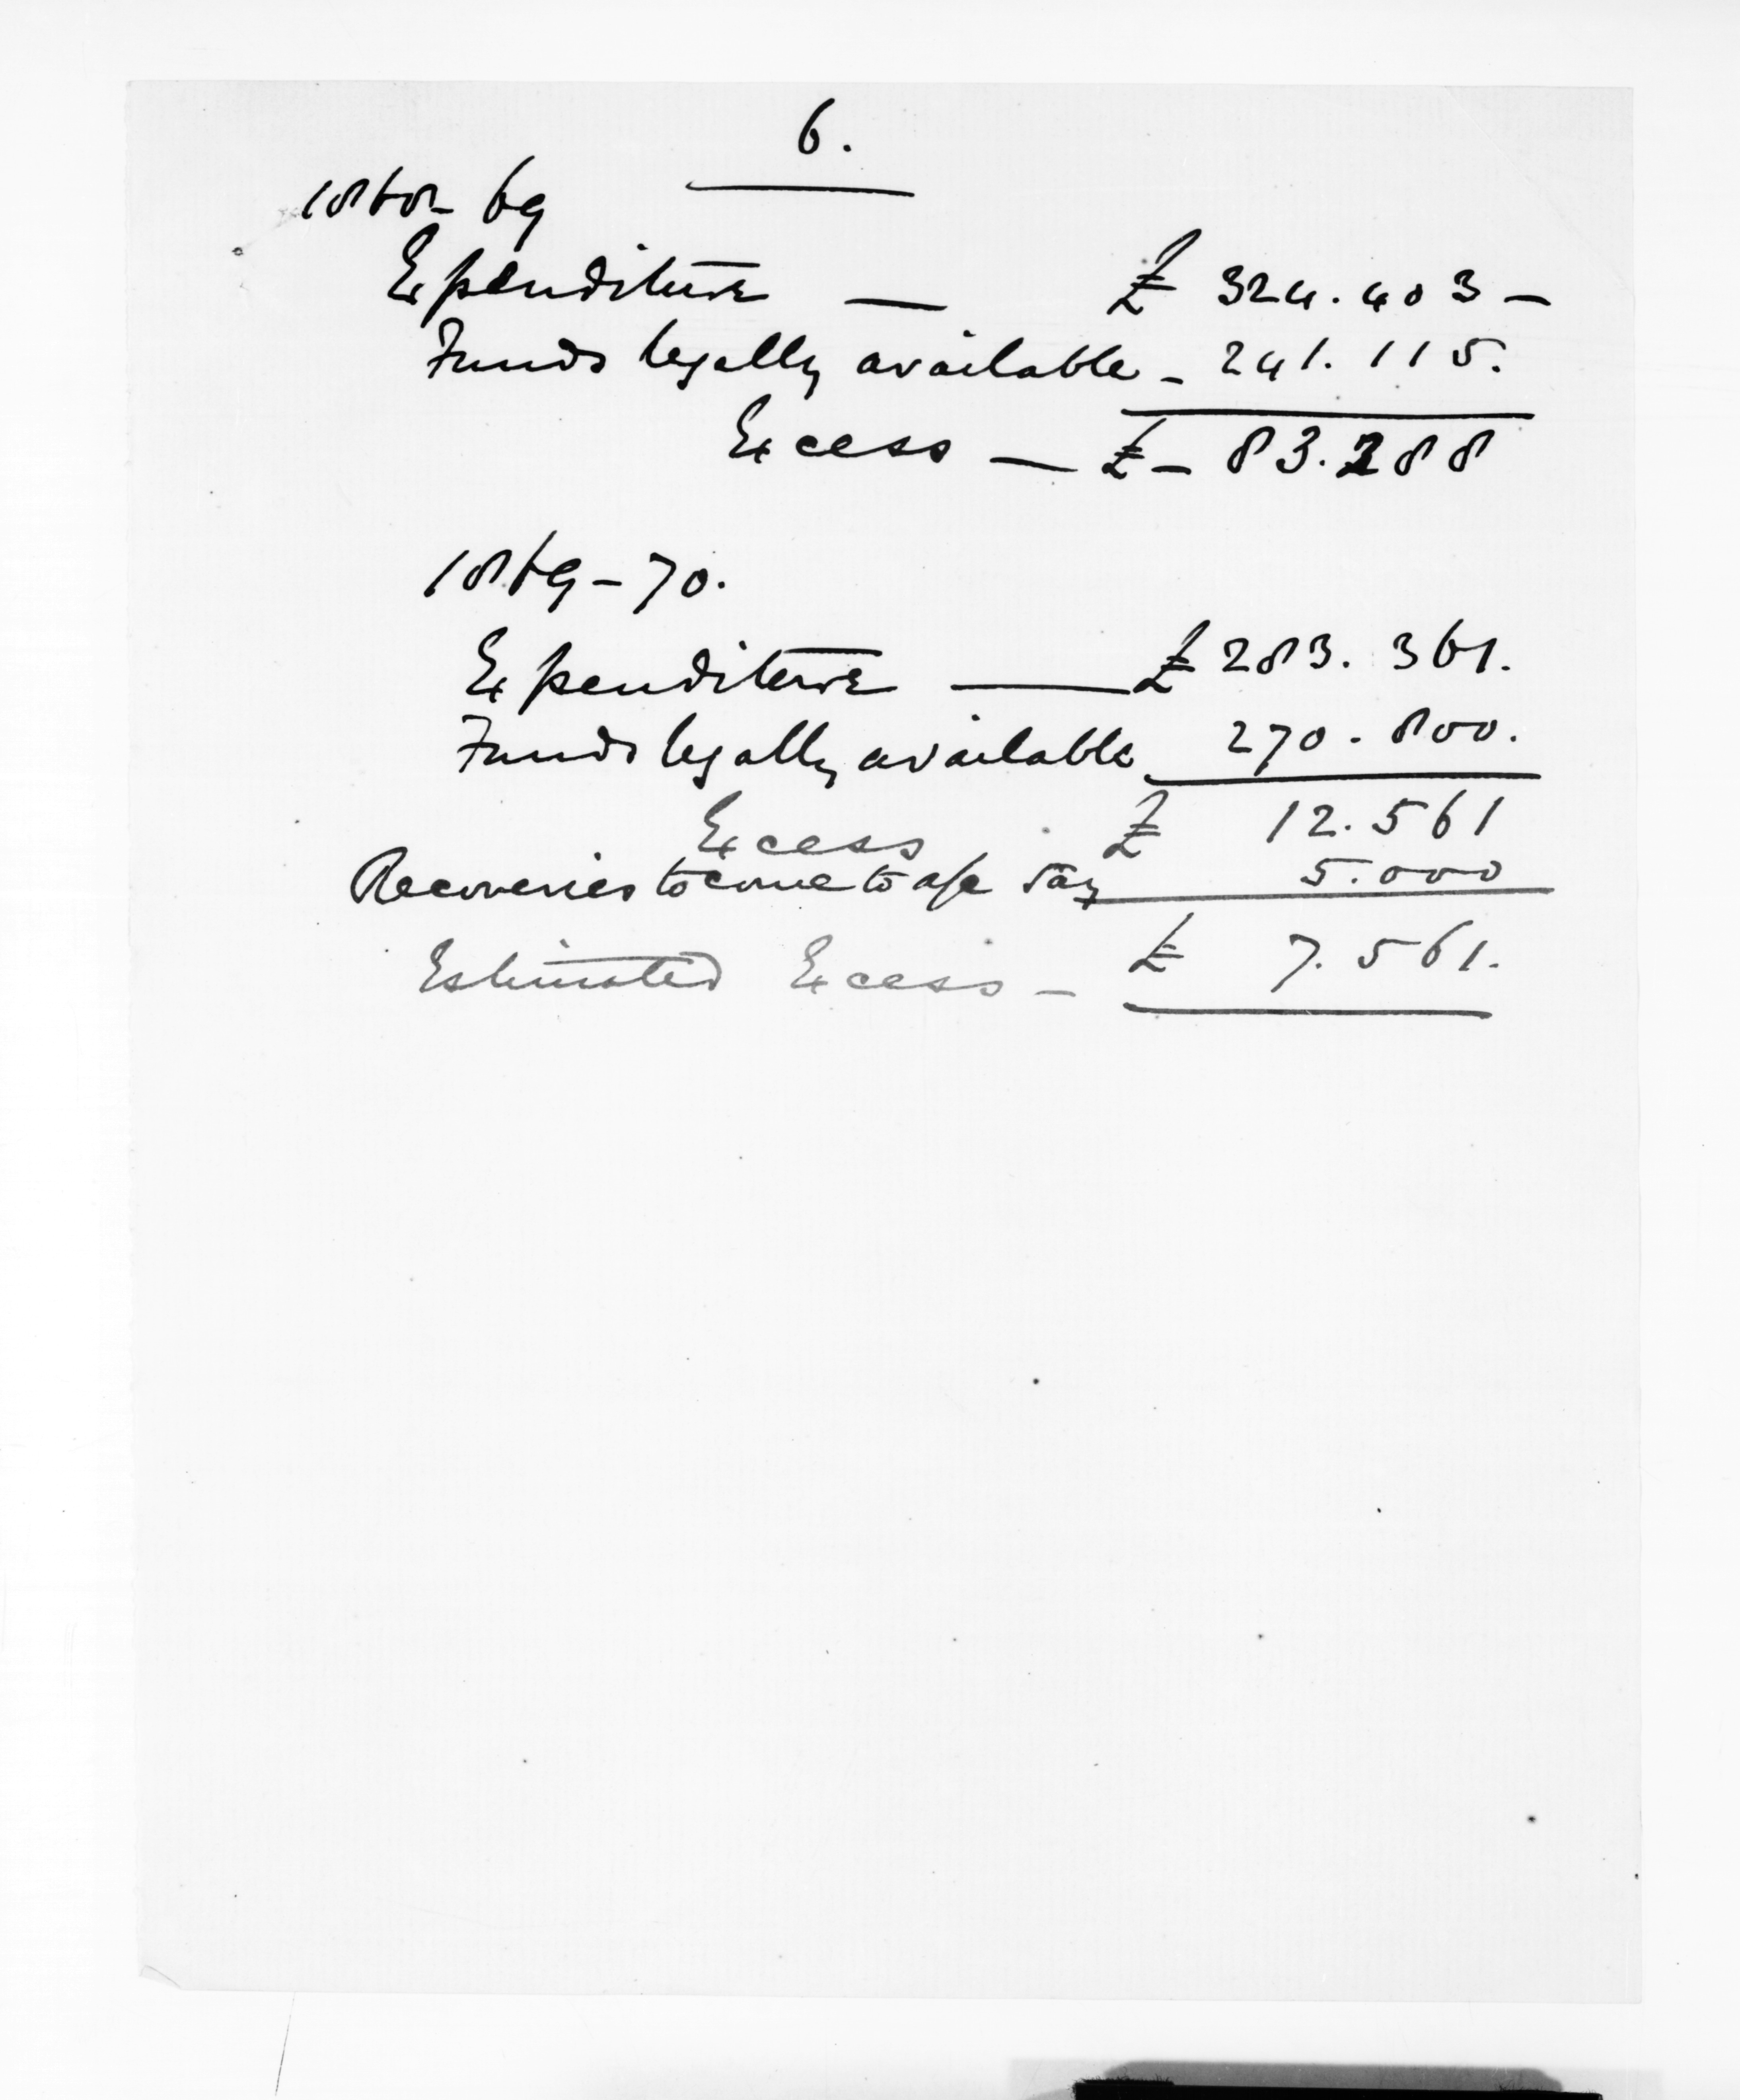 6.
1868-69
Expenditure — £ 324.403 —
Funds legally available - 241.115.
Excess — £ - 83.288
1869-70.
Expenditure — £ 283.361.
Funds legally available 270.800.
Excess £ 12.561
Recoveries to come to a/c say 5.000
Estimated Excess - £ 7.561.